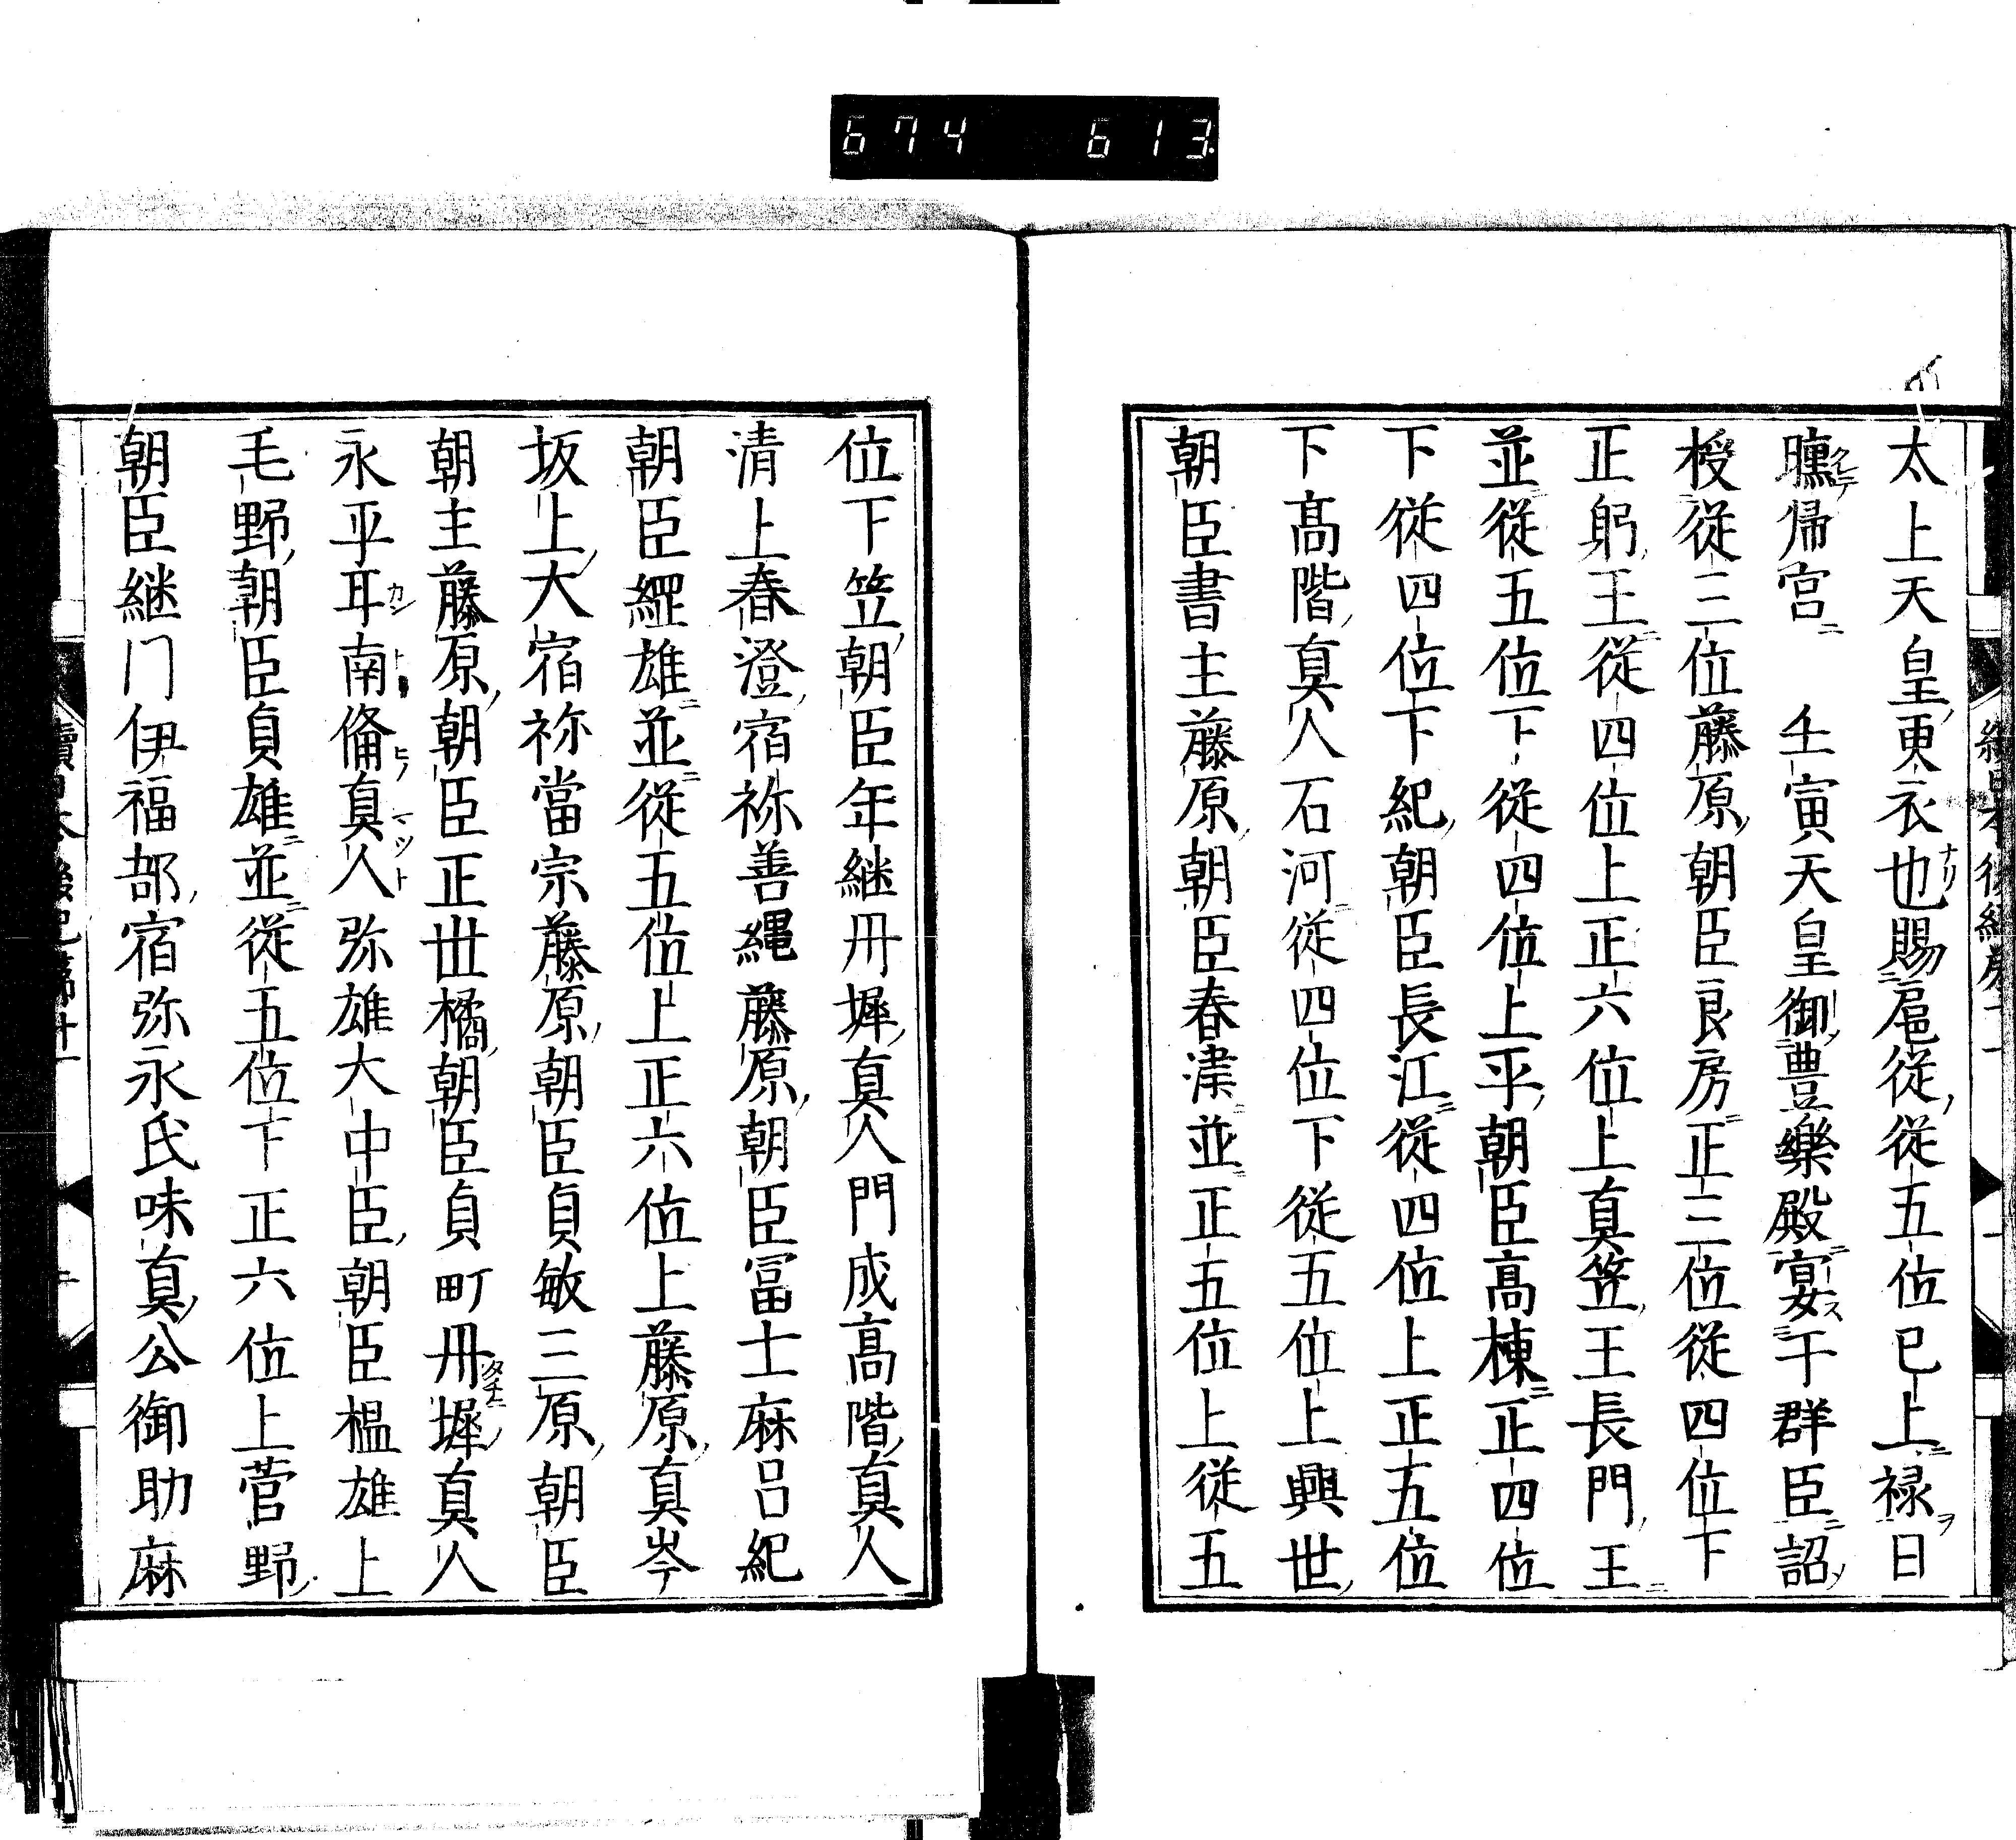 674 613
太上天皇更衣也賜扈従従五位已上禄日
曛帰宮 壬寅天皇御豊樂殿宴于群臣詔
授従三位藤原朝臣良房正三位従四位下
正躬王従四位上正六位上真笠王長門王
並従五位下従四位上平朝臣高棟正四位
下従四位下紀朝臣長江従四位上正五位
下高階真人石河従四位下従五位上興世
朝臣書主藤原朝臣春津並正五位上従五
位下笠朝臣年継丹墀真人門成高階真人
清上春澄宿祢善縄藤原朝臣冨士麻呂紀
朝臣綱雄並従五位上正六位上藤原真岑
坂上大宿祢當宗藤原朝臣貞敏三原朝臣
朝主藤原朝臣正世橘朝臣貞町丹墀真人
永平耳南備真人弥雄大中臣朝臣榲雄上
毛野朝臣貞雄並従五位下正六位上菅野
朝臣継門伊福部宿弥永氏味真公御助麻